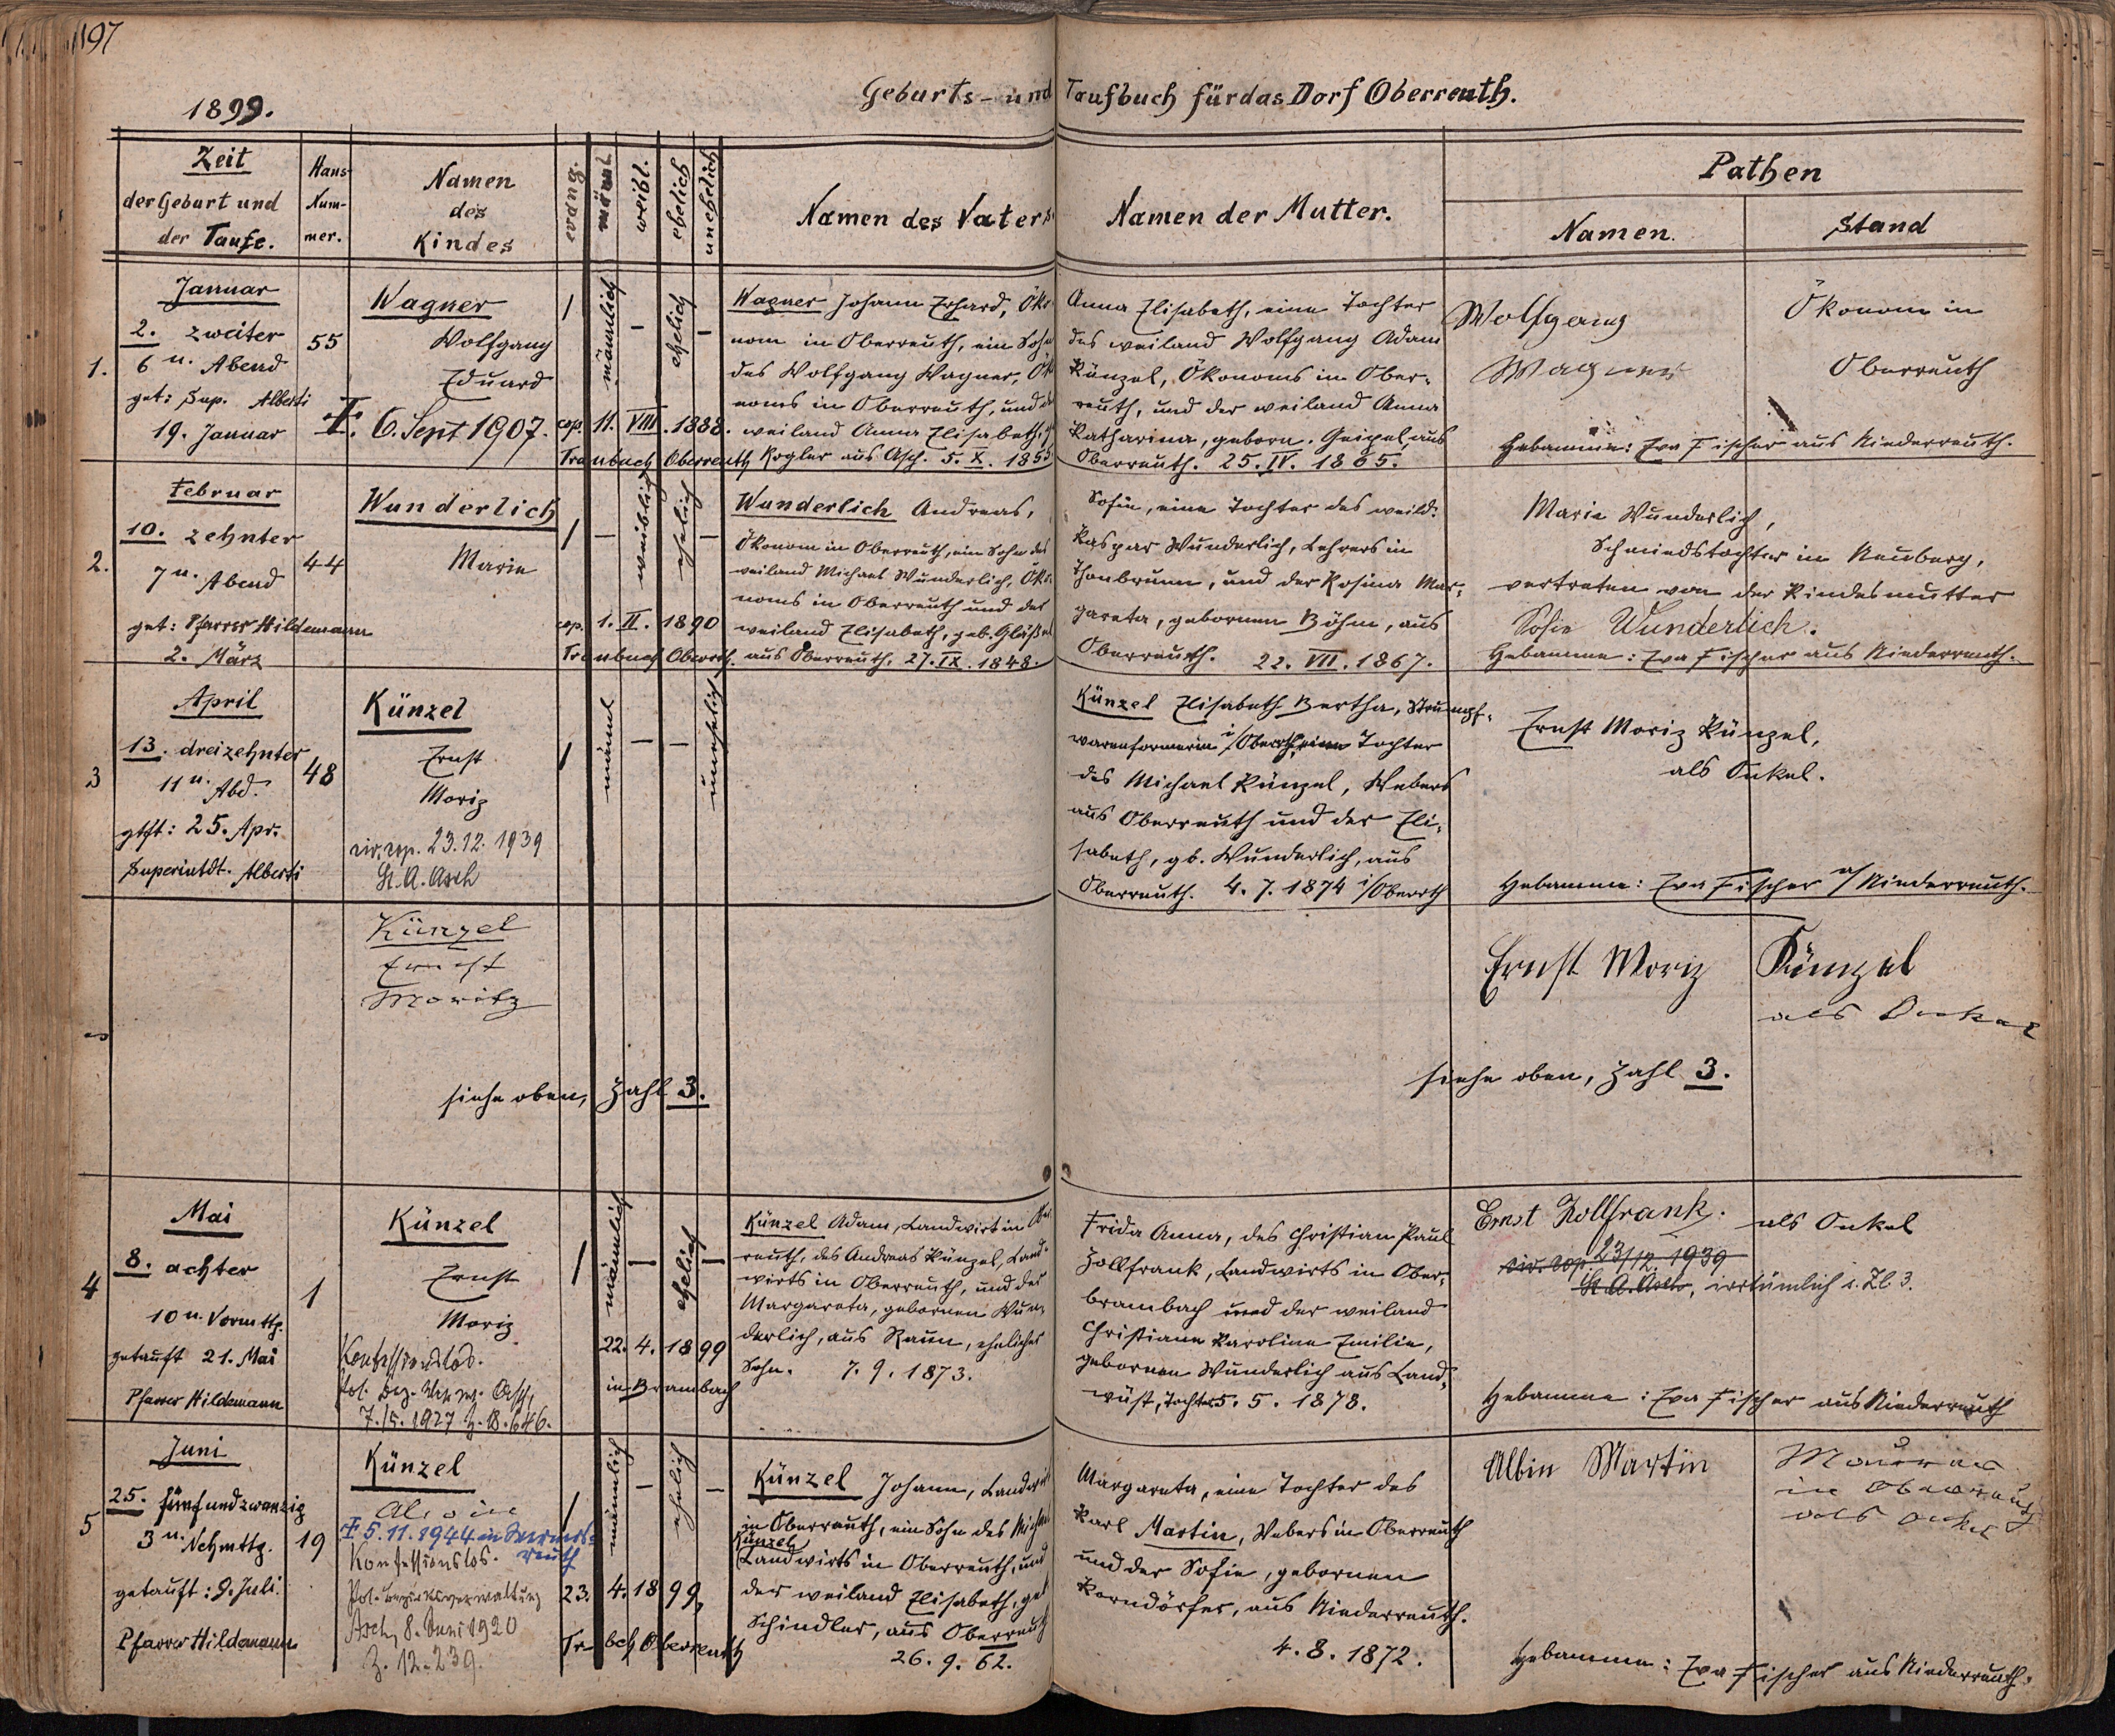 197
1899.
Geburts- und Taufbuch für das Dorf Oberreuth.
Zeit
der Geburt und
der Taufe.
Haus-
Num-
mer.
Namen
des
Kindes
evang.
männl.
weibl.
ehelich
unehelich
Namen des Vaters.
Namen der Mutter.
Pathen
Namen.
Stand
1.
Januar
2. zweiter
6 u. Abend
get: Sup. Alberti
19. Januar
55
Wagner
Wolfgang
Eduard
6. Sept 1907.
/
männlich
—
ehelich
—
cop. 11. VIII. 1888.
Traubuch Oberreuth
Wagner Johann Erhard, Öko-
nom in Oberreuth, ein Sohn
des Wolfgang Wagner, Öko
noms in Oberreuth, und der
weiland Anna Elisabeth,
Kogler aus Asch. 5. X. 1855
Anna Elisabeth, eine Tochter
des weiland Wolfgang Adam
Künzel, Ökonoms in Ober-
reuth, und der weiland Anna
Katharina, geborn. Geipel, aus
Oberreuth. 25. IV. 1865.
Wolfgang
Wagner
Ökonom in
Oberreuth
Hebamme: Eva Fischer aus Niederreuth.
2.
Februar
10. zehnter
7 u. Abend
get: Pfarrer Hildemann
2. März
44
Wunderlich
Marie
/
—
weiblich
ehelich
—
cop. 1. II. 1890
Traubuch Oberrth.
Wunderlich Andreas,
Ökonom in Oberreuth, ein Sohn des
weiland Michael Wunderlich, Öko-
noms in Oberreuth und der
weiland Elisabeth, geb. Gläßel
aus Oberreuth. 27. IX. 1848.
Sofie, eine Tochter des weild.
Kaspar Wunderlich, Lehrers in
Thonbrunn, und der Rosina Mar-
gareta, gebornen Böhm, aus
Oberreuth. 22. VII. 1867.
Marie Wunderlich,
Schmiedstochter in Neuberg,
vertreten von der Kindesmutter
Sofie Wunderlich.
Hebamme: Eva Fischer aus Niederreuth.
3
April
13. dreizehnter
11 u. Abd.
gtft: 25. Apr.
Superintdt. Alberti
48
Künzel
Ernst
Moriz
civ. cop. 23.12.1939
St. A. Asch
/
männl
—
—
unehelich
Künzel Elisabeth Bertha, Strumpf-
warenformerin i/Oberrth, eine Tochter
des Michael Künzel, Webers
aus Oberreuth und der Eli-
sabeth, gb. Wunderlich, aus
Oberreuth. 4. 7. 1874 i/Oberrth
Ernst Moriz Künzel,
als Onkel.
Hebamme: Eva Fischer a/Niederreuth.
Künzel
Ernst
Moritz
siehe oben, Zahl 3.
Ernst Moriz Künzel
als Onkel
siehe oben, Zahl 3.
4
Mai
8. achter
10 u. Vormttg.
getauft 21. Mai
Pfarrer Hildemann
1
Künzel
Ernst
Moriz
Konfessionslos.
pol. Bez. Verw. Asch,
7./5. 1927 Z. B. 646.
/
männlich
—
ehelich
—
22. 4. 1899
in Brambach
Künzel Adam, Landwirt in Ober
reuth, des Andreas Künzel, Land-
wirts in Oberreuth, und der
Margareta, gebornen Wun-
derlich, aus Raun, ehelicher
Sohn. 7. 9. 1873.
Frida Anna, des Christian Paul
Zollfrank, Landwirts in Ober-
brambach und der weiland
Christiane Karoline Emilie,
gebornen Wunderlich aus Land-
wüst, Tochter 5. 5. 1878.
Ernst Zollfrank. als Onkel
civ. cop. 23/12. 1939
St. A. Asch, irrtümlich s. Zl. 3.
Hebamme: Eva Fischer aus Niederreuth
5
Juni
25. fünfundzwanzig
3 u. Nchmttg.
getauft: 9. Juli.
Pfarrer Hildemann
19
Künzel
Alwin
5.11.1944 in
reuth
Konfessionslos.
Pol. Bezirksverwaltung
Asch, 8. Juni 1920
Z. 12.239.
/
männlich
—
ehelich
—
23. 4. 1899,
Trbch Oberreuth
Künzel Johann, Landwirt
in Oberreuth, ein Sohn des Michael
Künzel,
Landwirts in Oberreuth, und
der weiland Elisabeth, geb
Schindler, aus Oberreuth
26. 9. 62.
Margareta, eine Tochter des
Karl Martin, Webers in Oberreuth
und der Sofie, gebornen
Korndörfer, aus Niederreuth.
4. 8. 1872.
Albin Martin
Maurer
in Oberreuth
als Onkel
Hebamme: Eva Fischer aus Niederreuth.